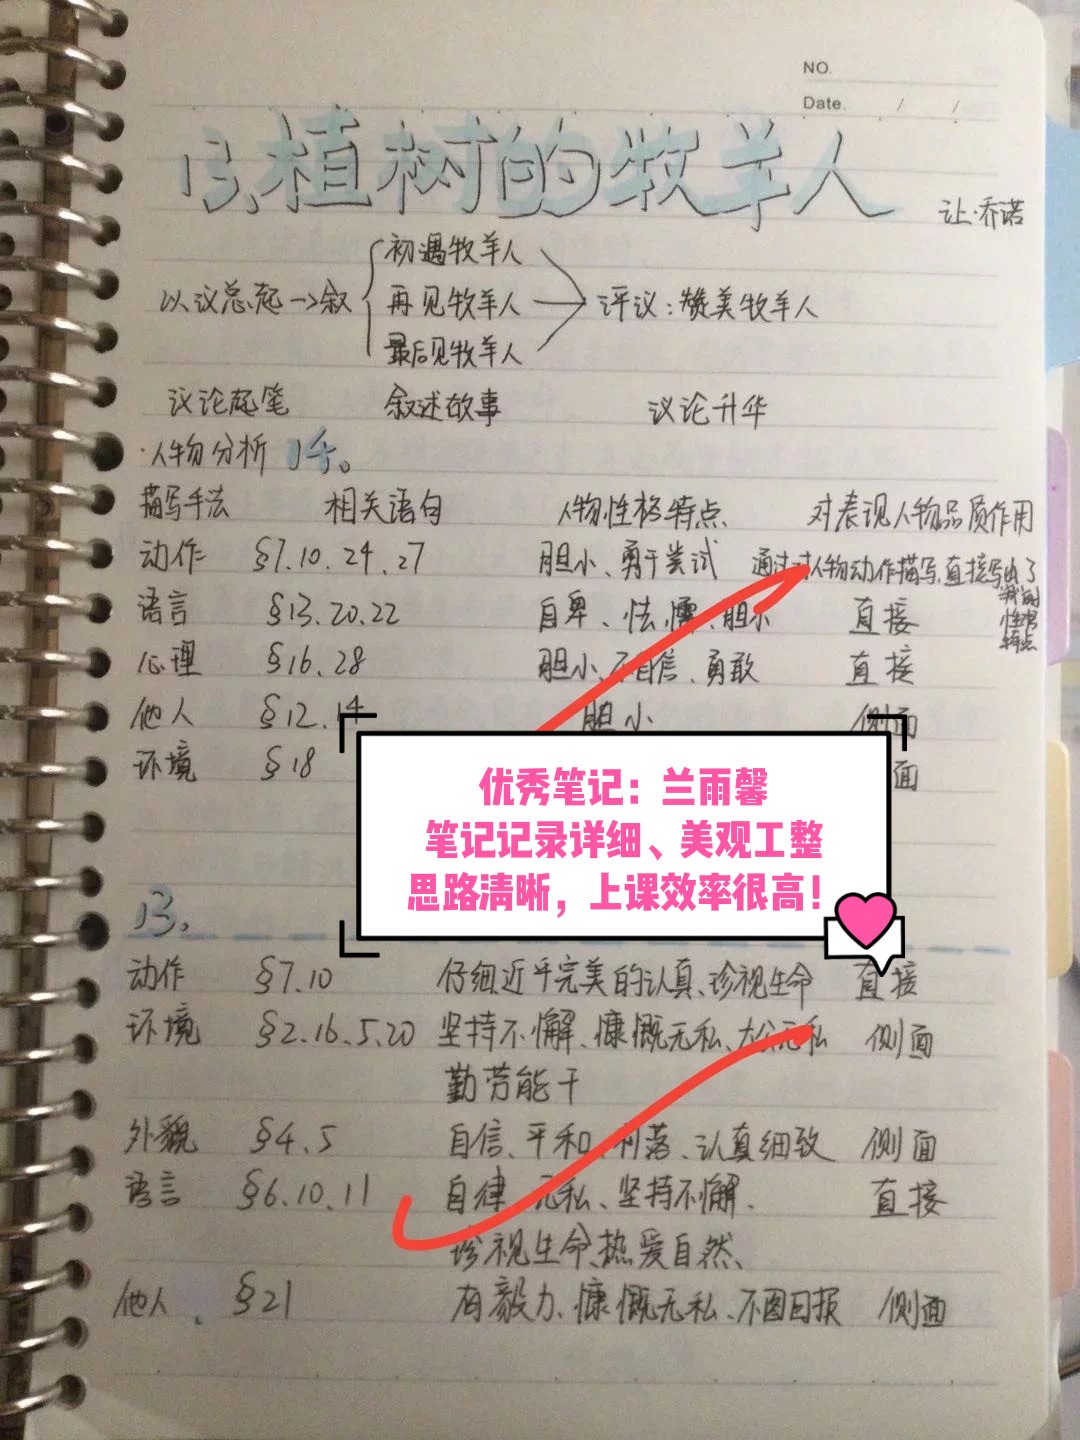 NO.
Date. / /
13.植树的牧羊人
让·乔诺
初遇牧羊人
以议总起→叙 再见牧羊人 评议:赞美牧羊人
最后见牧羊人
议论起笔 叙述故事 议论升华
·人物分析 14。
描写手法 相关语句 人物性格特点 对表现人物品质作用
动作 §7.10.24.27 胆小、勇于尝试 通过对人物动作描写,直接写出了
性格
特点
语言 §13.20.22 自卑、怯懦、胆小 直接
心理 §16.28 胆小、不自信、勇敢 直接
他人 §12.14 胆小 侧面
环境 §18 面
优秀笔记:兰雨馨
笔记记录详细、美观工整
思路清晰,上课效率很高!
13.
动作 §7.10 仔细近乎完美的认真、珍视生命 直接
环境 §2.16.5.20 坚持不懈、慷慨无私、大公无私 侧面
勤劳能干
外貌 §4.5 自信、平和、利落、认真细致 侧面
语言 §6.10.11 自律、无私、坚持不懈. 直接
珍视生命、热爱自然、
他人. §21 有毅力、慷慨无私、不图回报 侧面